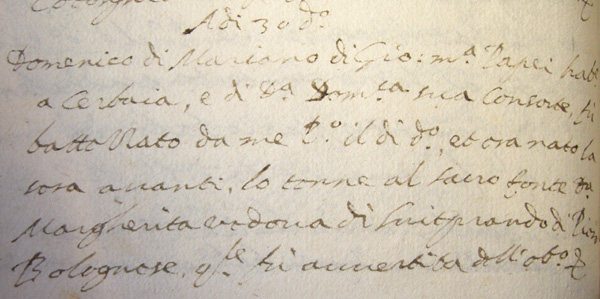 Adi 30 do.
Domenico di Mariano di Gio: ma. Papei habe.
a Cerbaia, e di Da. Domca sua Consorte, fù
battezzato da me Po. il di do., et era nato la
sera avanti, lo tenne al sacro fonte Da.
Margherita vedova di di
Bolognese, qle. fù avvertita dell'obo. &